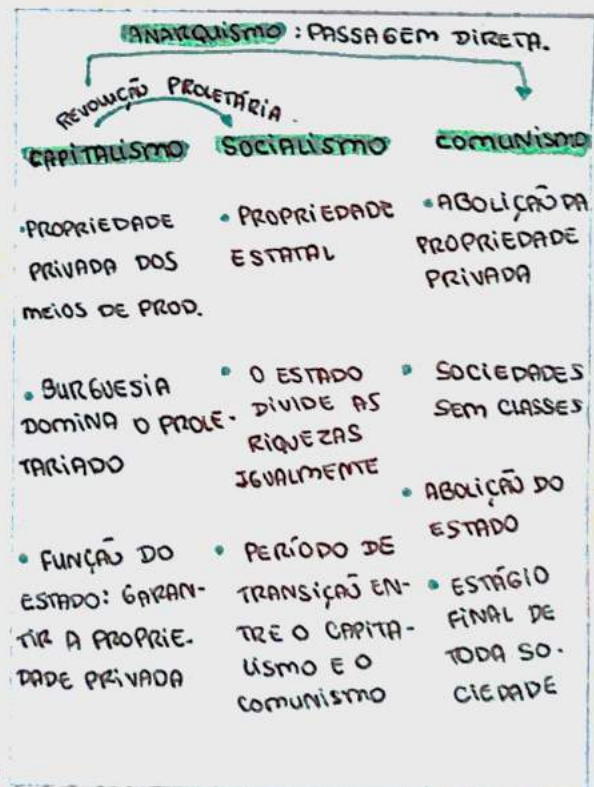 ANARQUISMO : PASSAGEM DIRETA.
REVOLUÇÃO PROLETÁRIA.
CAPITALISMO
• PROPRIEDADE
PRIVADA DOS
MEIOS DE PROD.
• BURGUESIA
DOMINA O PROLE-
TARIADO
• FUNÇÃO DO
ESTADO: GARAN-
TIR A PROPRIE-
DADE PRIVADA
SOCIALISMO
• PROPRIEDADE
ESTATAL
• O ESTADO
DIVIDE AS
RIQUEZAS
IGUALMENTE
• PERÍODO DE
TRANSIÇÃO EN-
TRE O CAPITA-
LISMO E O
COMUNISMO
COMUNISMO
• ABOLIÇÃO DA
PROPRIEDADE
PRIVADA
• SOCIEDADES
SEM CLASSES
• ABOLIÇÃO DO
ESTADO
• ESTÁGIO
FINAL DE
TODA SO-
CIEDADE